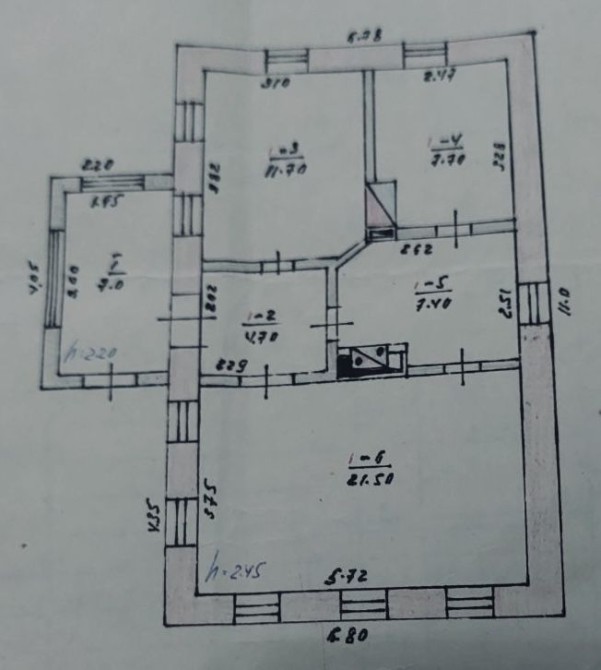 6.78
3.10
2.47
1-3
11.70
1-4
7.70
3.82
3.28
2.20
1.95
4.05
3.60
7.0
h=2.20
2.62
1-5
7.40
2.51
11.0
2.02
1-2
4.70
2.29
1-6
21.50
4.35
3.75
h=2.45
5.72
6.80